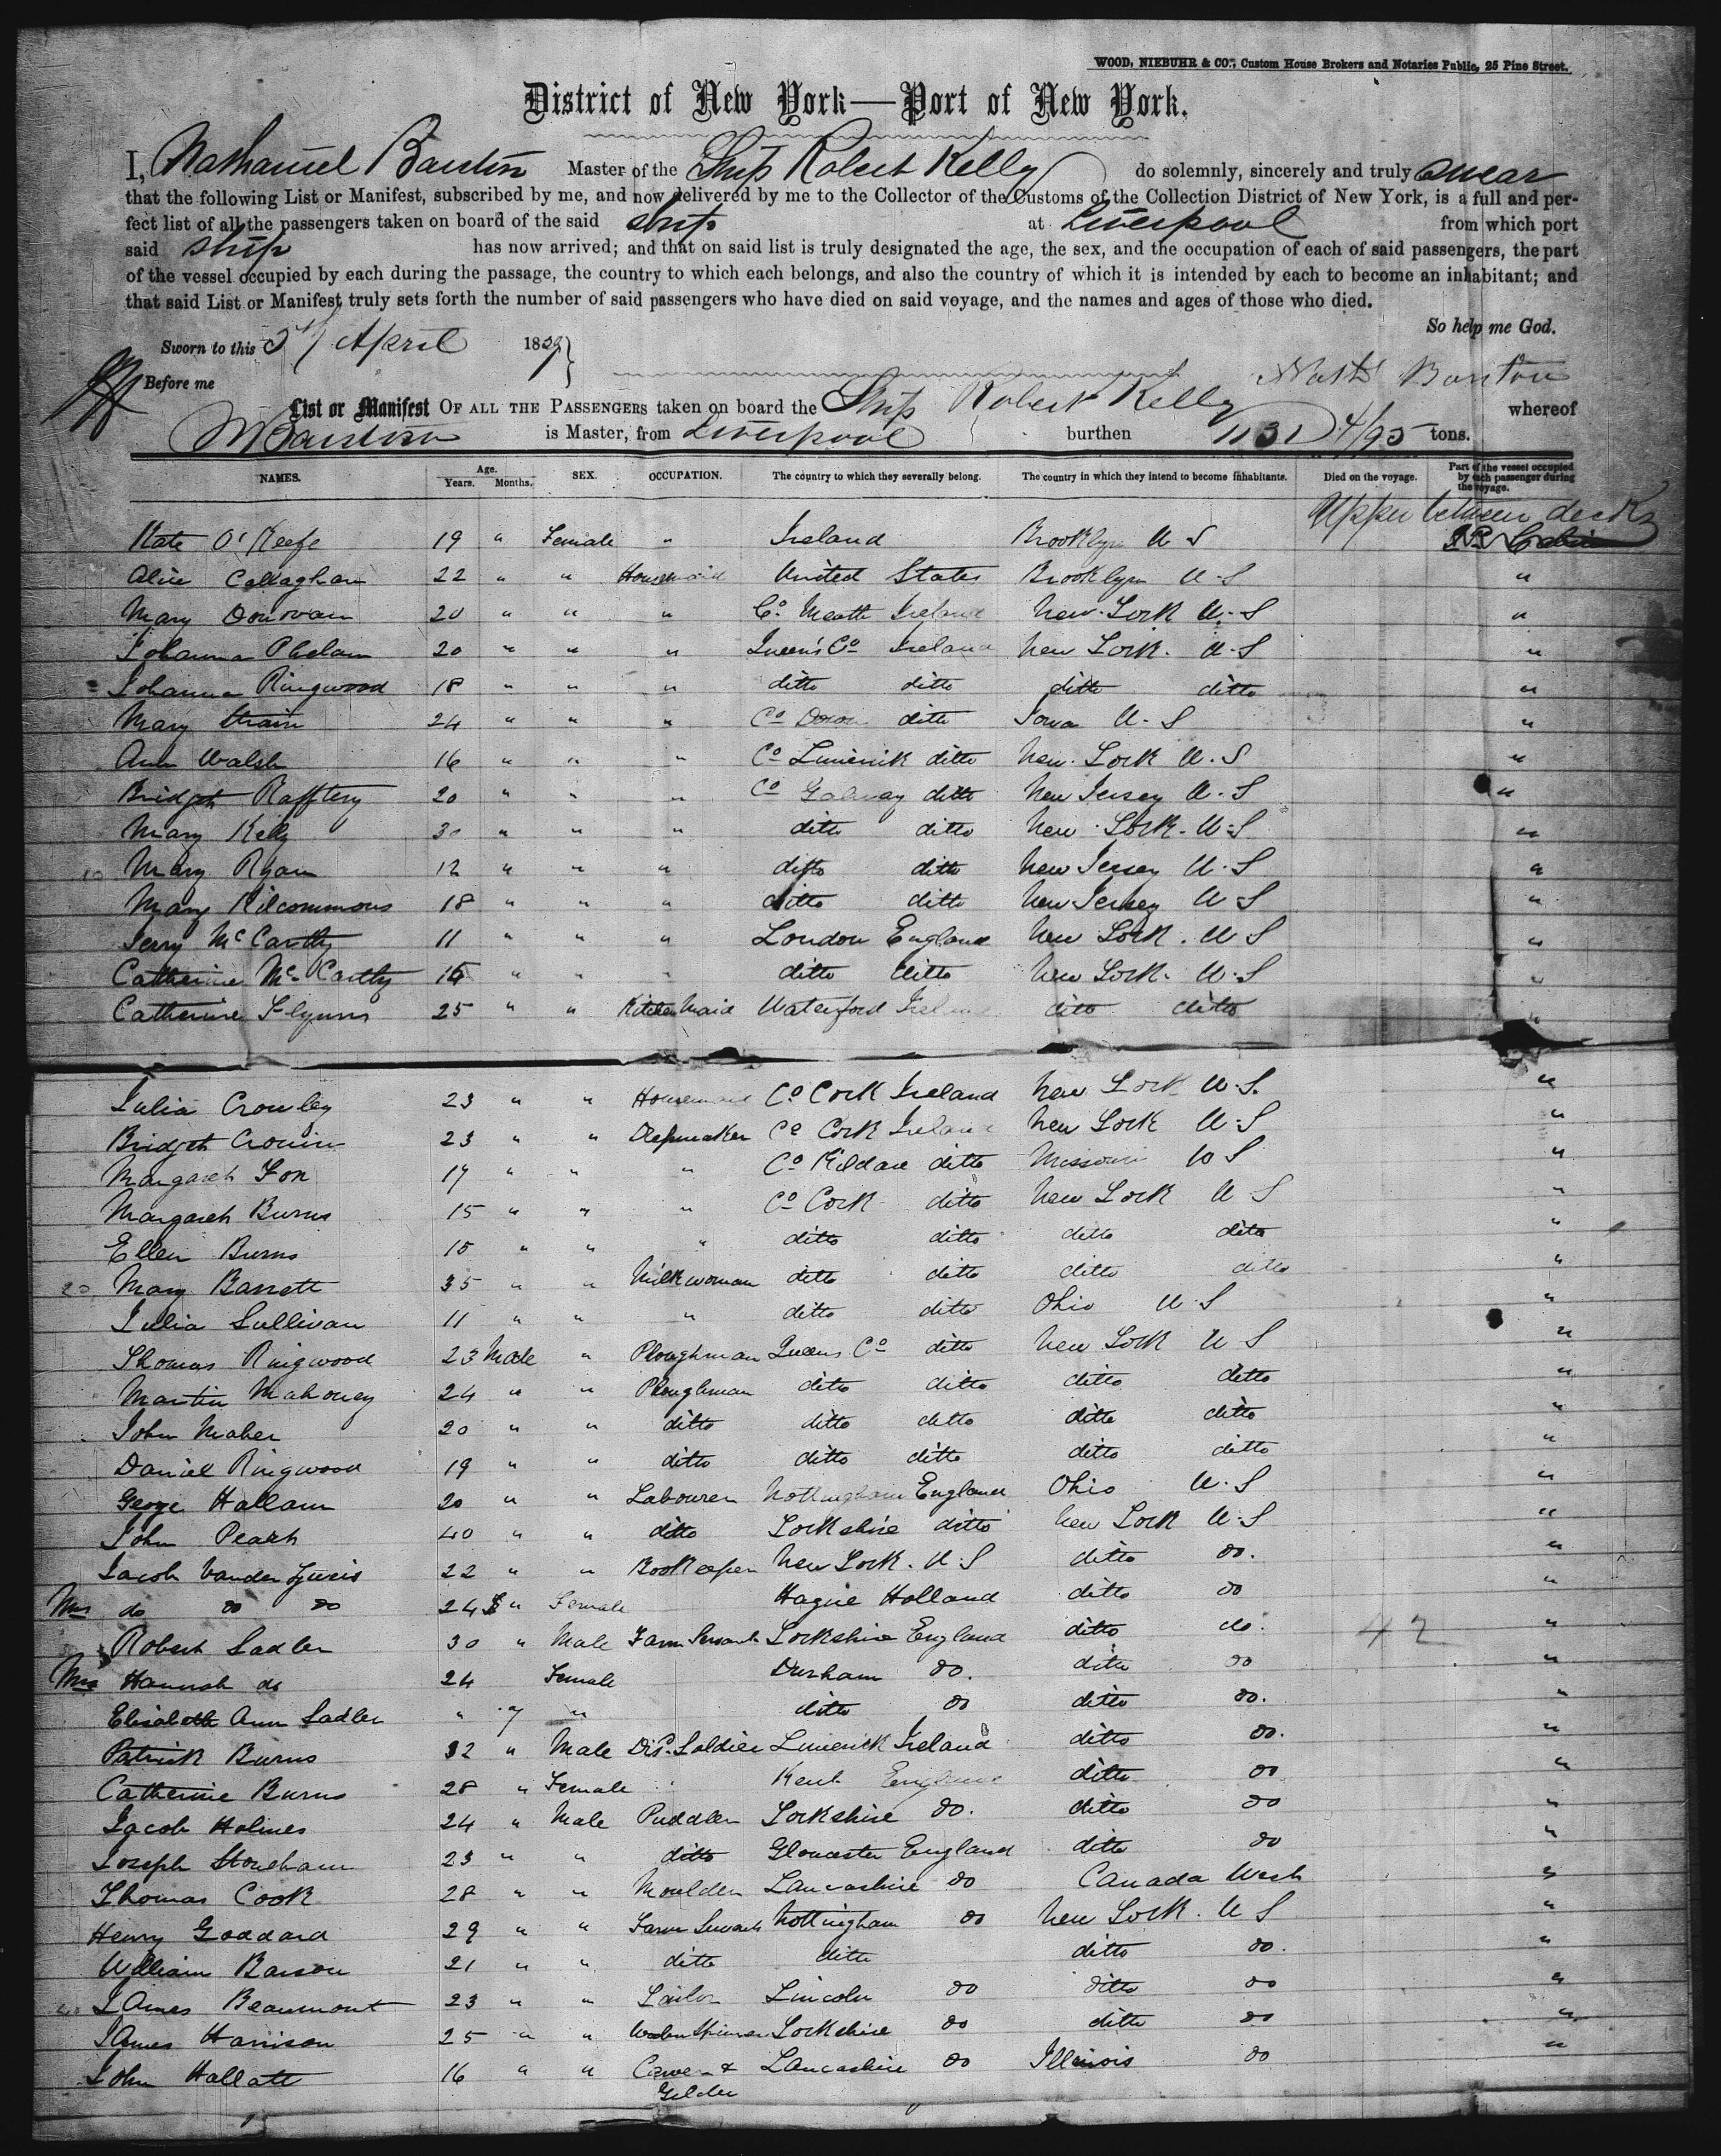 WOOD, NIEBUHR & CO., Custom House Brokers and Notaries Public, 25 Pine Street.
District of New York—Port of New York.
I, Nathaniel Barston Master of the Ship Robert Kelly do solemnly, sincerely and truly swear
that the following List or Manifest, subscribed by me, and now delivered by me to the Collector of the Customs of the Collection District of New York, is a full and per-
fect list of all the passengers taken on board of the said ship at Liverpool from which port
said ship has now arrived; and that on said list is truly designated the age, the sex, and the occupation of each of said passengers, the part
of the vessel occupied by each during the passage, the country to which each belongs, and also the country of which it is intended by each to become an inhabitant; and
that said List or Manifest truly sets forth the number of said passengers who have died on said voyage, and the names and ages of those who died.
So help me God.
Sworn to this 5th April 1859
Before me Nathl Barston
List or Manifest OF ALL THE PASSENGERS taken on board the Ship Robert Kelly whereof
N Barston is Master, from Liverpool burthen 1131 4/95 tons.
NAMES. Age. Years. Months. SEX. OCCUPATION. The country to which they severally belong. The country in which they intend to become inhabitants. Died on the voyage. Part of the vessel occupied by each passenger during the voyage.
Upper between decks
Kate O'Keefe 19 " Female " Ireland Brooklyn U S
Alice Callaghan 22 " " Housemaid United States Brooklyn U-S "
Mary Donovan 20 " " " Co. Meath Ireland New-York U.S "
Johanna Phelan 20 " " " Queen's Co Ireland New York. U-S "
Johanna Ringwood 18 " " " ditto ditto ditto ditto "
Mary Strain 24 " " " Co Down ditto Iowa U-S "
Ann Walsh 16 " " " Co Limerick ditto New York U.S "
Bridget Rafftery 20 " " " Co Galway ditto New Jersey U-S "
Mary Kelly 30 " " " ditto ditto New York-U-S "
10 Mary Ryan 12 " " " ditto ditto New Jersey U-S "
Mary Kilcommons 18 " " " ditto ditto New Jersey U S "
Jerry McCarthy 11 " " " London England New York. U S "
Catherine McCarthy 15 " " " ditto ditto New York. U-S "
Catherine Flynn 25 " " Kitchen Maid Waterford Ireland ditto ditto "
Julia Crowley 23 " " Housemaid Co Cork Ireland New York U.S. "
Bridget Cronin 23 " " Dressmaker Co Cork Ireland New York U-S "
Margaret Fox 17 " " " Co Kildare ditto Missouri U S "
Margaret Burns 15 " " " Co Cork ditto New York U S "
Ellen Burns 15 " " " ditto ditto ditto ditto "
20 Mary Barrett 35 " " Milkwoman ditto ditto ditto ditto "
Julia Sullivan 11 " " " ditto ditto Ohio U.S "
Thomas Ringwood 23 Male " Ploughman Queens Co ditto New York U S "
Martin Mahoney 24 " " Ploughman ditto ditto ditto ditto "
John Maher 20 " " ditto ditto ditto ditto ditto "
Daniel Ringwood 19 " " ditto ditto ditto ditto ditto "
George Hallam 20 " " Labourer Nottingham England Ohio U.S "
John Peach 40 " " ditto Yorkshire ditto New York U.S "
Jacob Vander 22 " " Bookkeeper New York. U.S ditto do. "
Mrs do do do 24 " Female Hague Holland ditto do "
Robert Sadler 30 " Male Farm Servant Yorkshire England ditto do. 42 "
Mrs Hannah do 24 Female Durham do. ditto do "
Elisabeth Ann Sadler " 7 " ditto do ditto do. "
Patrick Burns 32 " Male Dis. Soldier Limerick Ireland ditto do. "
Catherine Burns 28 " Female " Kent England ditto do "
Jacob Holmes 24 " Male Puddler Yorkshire do. ditto do "
Joseph Stoneham 23 " " ditto Gloucester England ditto do "
Thomas Cook 28 " " Moulder Lancashire do Canada West "
Henry Goddard 29 " " Farm Servant Nottingham do New York. U S "
William Barson 21 " " ditto ditto ditto do. "
40 James Beaumont 23 " " Tailor Lincoln do ditto do "
James Harrison 25 " " Woolen Spinner Yorkshire do ditto do "
John Hallatt 16 " " Carver & Lancashire do Illinois do "
Gilder